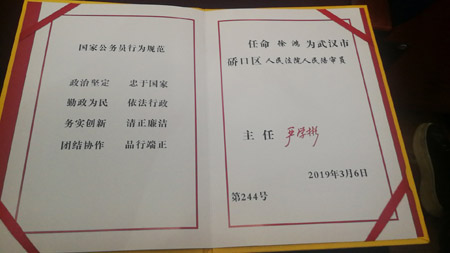 国家公务员行为规范
政治坚定 忠于国家
勤政为民 依法行政
务实创新 清正廉洁
团结协作 品行端正
任命 徐鸿 为武汉市
硚口区 人民法院人民陪审员
主任 严荣彬
2019年3月6日
第244号